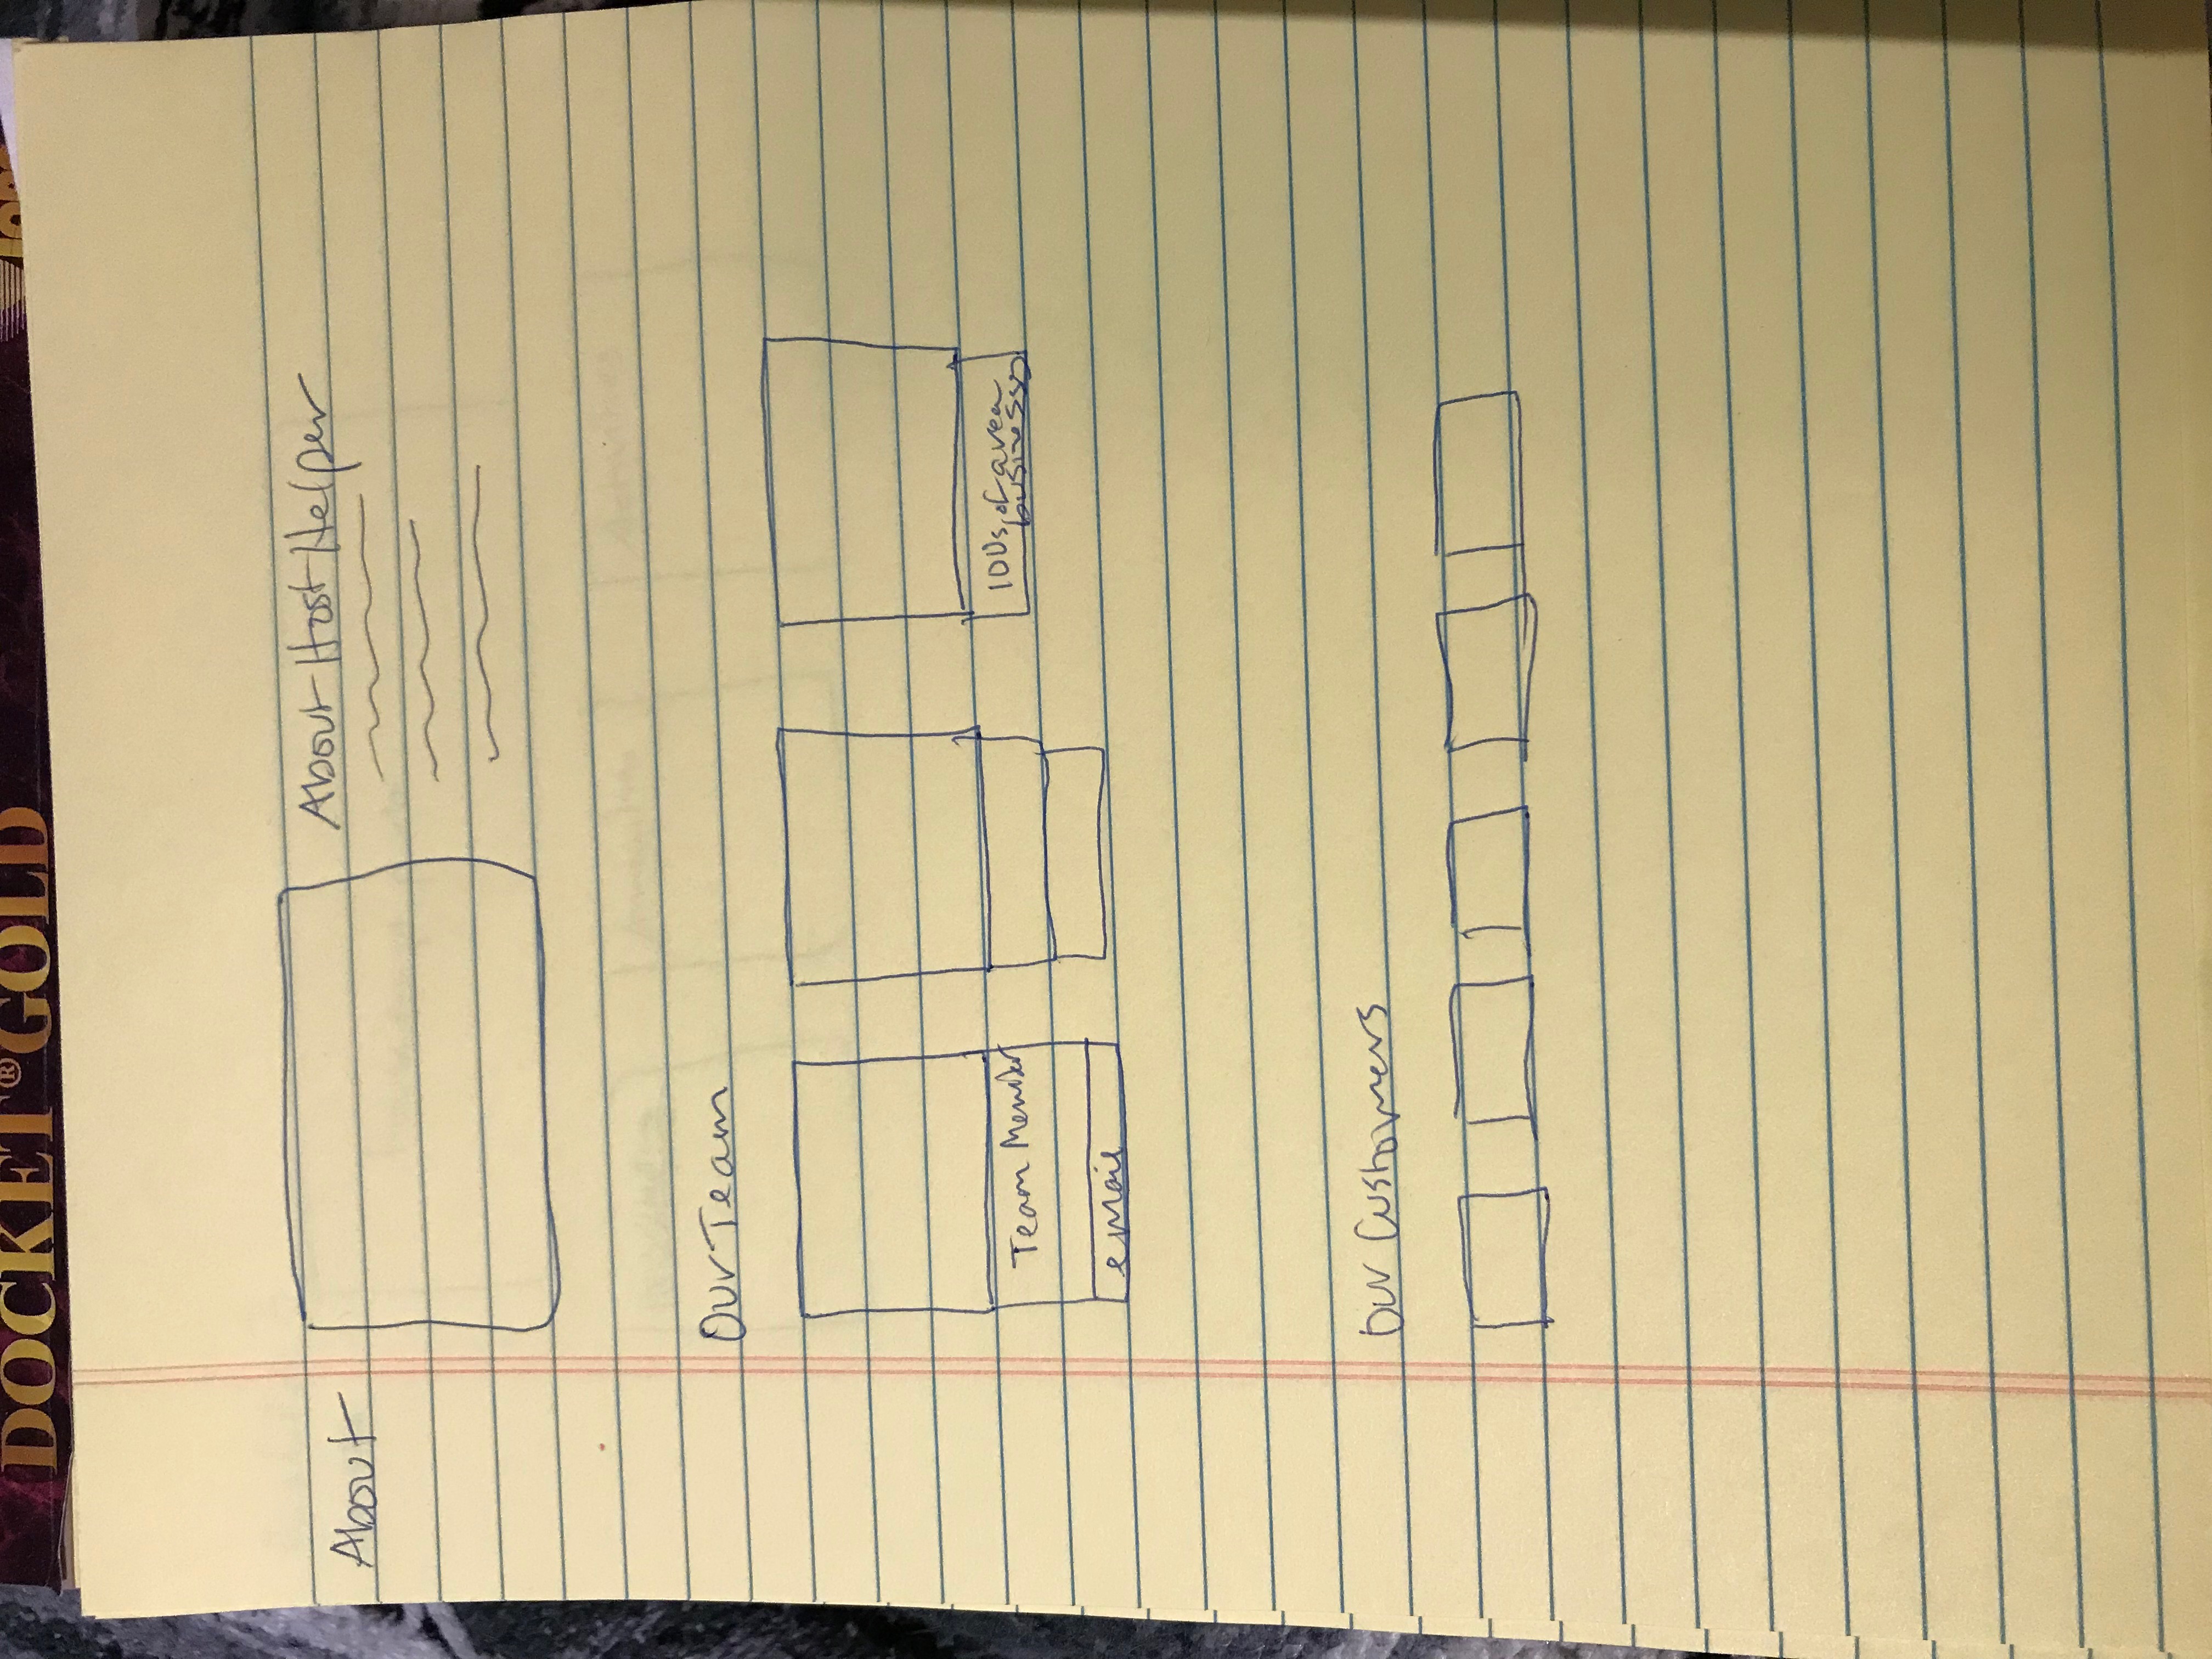 DOCKET® GOLD
About
About Host Helper
Our Team
Team Member
email
100s of area
businesses
Our Customers